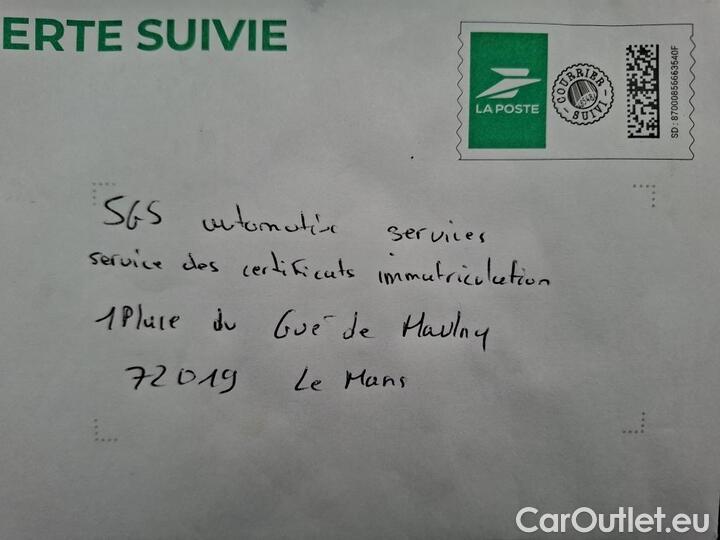 ERTE SUIVIE
LA POSTE
COURRIER SUIVI
SD : 87000856663540F
SGS automotive services
service des certificats immatriculation
1 Place du Gué de Maulny
72019 Le Mans
CarOutlet.eu